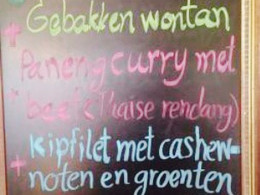 + Gebakken wontan
Paneng curry met
beef (Thaise rendang)
+ Kipfilet met cashew-
noten en groenten